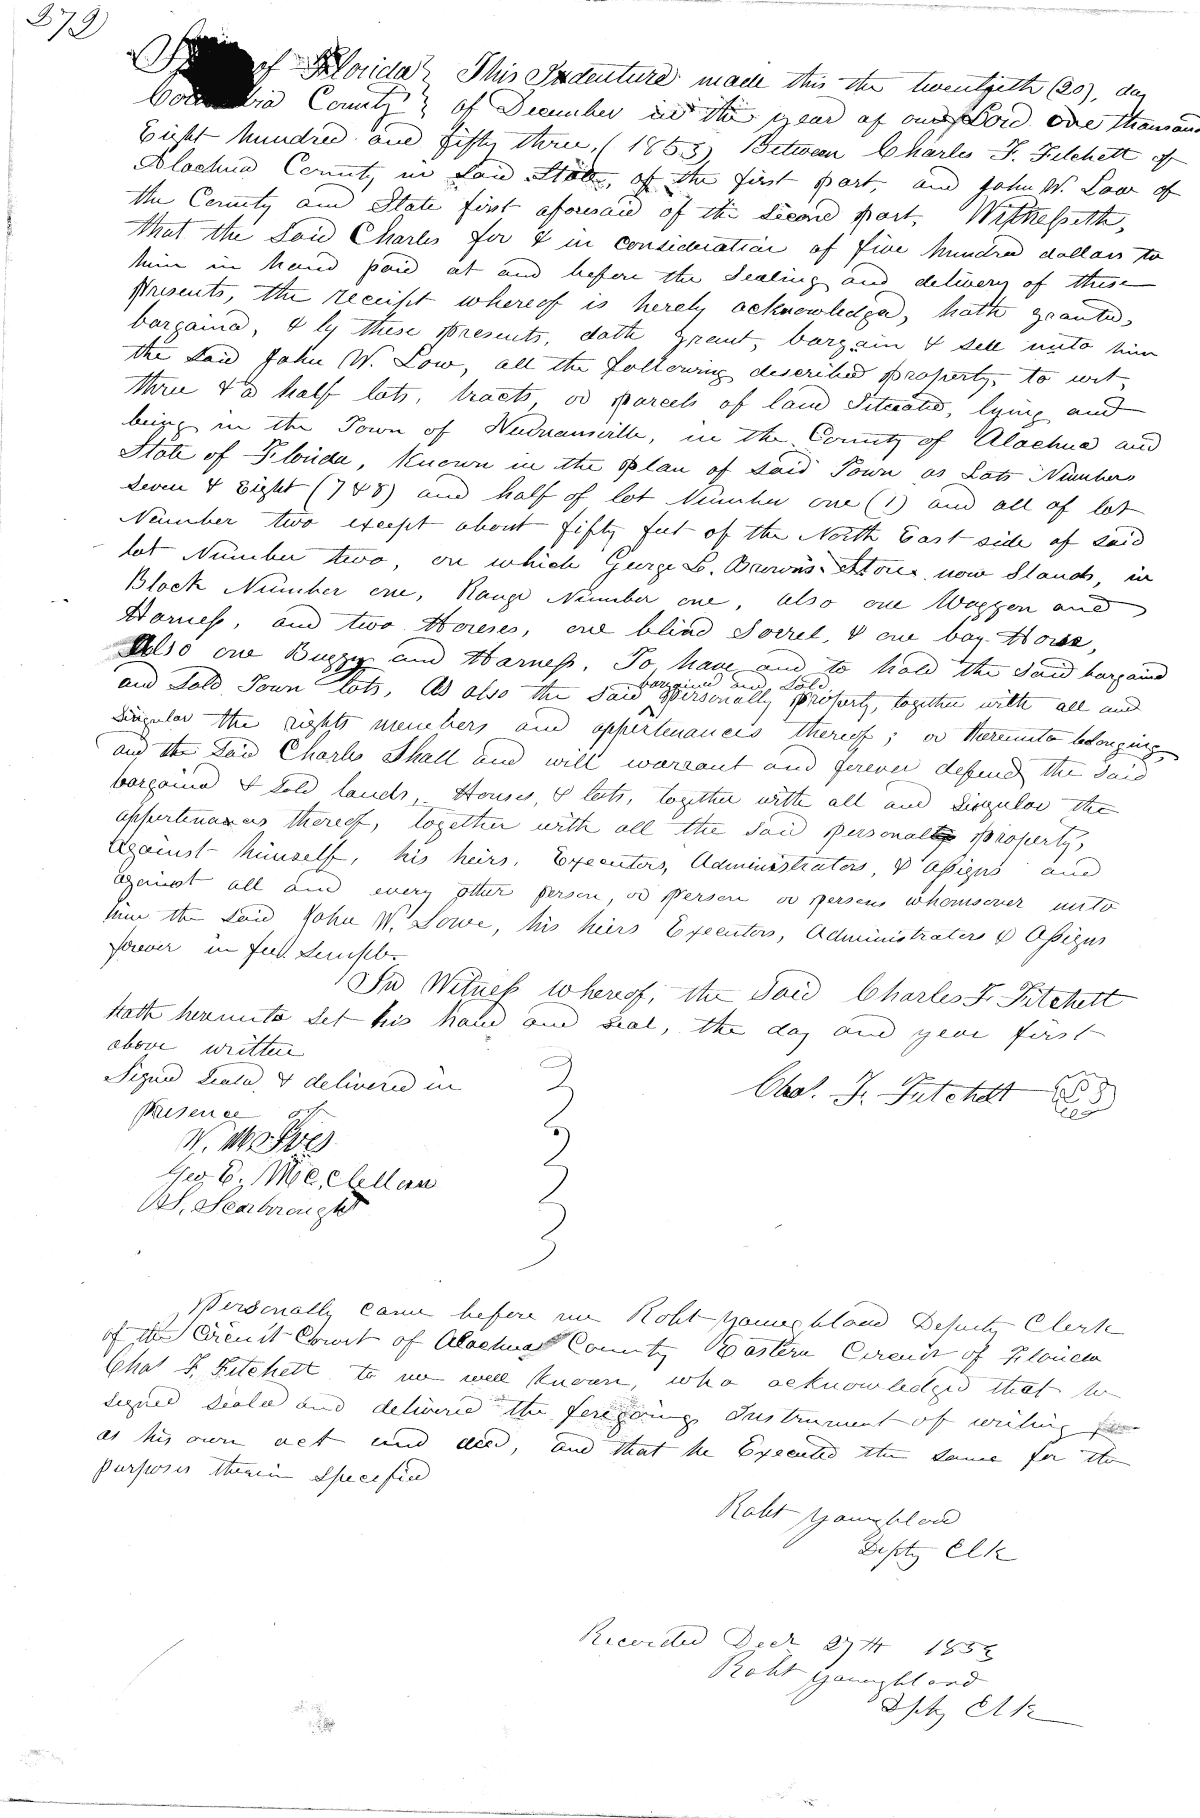 272
of Florida } This Indenture made this the twentyeth (20), day
County } of December in the year of our Lord one thousand
Eight hundred and fifty three, (1853) Between Charles F. Fitchett of
Alachua County in Said State, of the first part, and John W. Low of
the County and State first aforesaid of the Second part, Witnesseth,
that the Said Charles for & in consideration of five hundred dollars to
him in hand paid at and before the Sealing and delivery of these
Presents, the receipt whereof is herely acknowledged, hath granted,
bargaind, & by these presents, doth grant, bargain & Sell unto him
the Said John W. Low, all the following described property, to wit,
three & a half lots, tracts, or parcels of land Situated, lying and
being in the Town of Newnansville, in the County of Alachua and
State of Florida, Known in the plan of Said Town as Lots Numbers
Seven & Eight (7 & 8) and half of lot Number one (1) and all of lot
Number two except about fifty feet of the North East side of said
lot Number two, on which George L. Brown's Store now Stands, in
Block Number one, Range Number one, also one Waggon and
Harness, and two Horeses, one blind Sorrel, & one bay Horse,
Also one Buggy and Harness. To have and to hold the Said bargaind
and Sold Town lots, As also the Said bargained and Sold personally property, together with all and
Singular the rights members and appertenances thereof; or thereunto belonging,
and the Said Charles Shall and will warrant and forever defend the Said
bargaind & Sold lands, Houses, & lots, together with all and Singular the
appertenances thereof, together with all the Said personal property,
Against himself, his heirs, Executors, Administrators, & Assigns and
against all and every other person, or person or persons whomsover unto
him the Said John W. Lowe, his heirs Executors, Administrators & Assigns
forever in fee Simple.
In Witness whereof, the Said Charles F. Fitchett
hath hereunto Set his hand and Seal, the day and year first
above written
Signed Seald & delivered in
presence of
Chas. F. Fitchett
W. McIves
Geo E. McClellan
S. Scarbrought
Personally came before me Robt Youngblood Deputy Clerk
of the Circuit Court of Alachua County Eastern Circuit of Florida
Chas F. Fitchett to me well known, who acknowledged that he
signed sealed and delivered the foregoing Instrument of writing
as his own act and deed, and that he Executed the same for the
purposes therein specified
Robt Youngblood
Depty Clk
Recorded Decr 27th 1853
Robt Youngblood
Dpty Clk